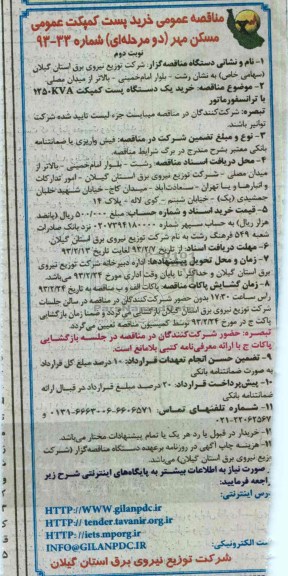 مناقصه عمومی خرید پست کمپکت عمومی
مسکن مهر (دو مرحله‌ای) شماره ۳۳-۹۳
نوبت دوم
۱- نام و نشانی دستگاه مناقصه‌گزار: شرکت توزیع نیروی برق استان گیلان
(سهامی خاص) به نشان رشت - بلوار امام‌خمینی - بالاتر از میدان مصلی
۲- موضوع مناقصه: خرید یک دستگاه پست کمپکت ۱۲۵۰KVA
با ترانسفورماتور
تبصره: شرکت‌کنندگان در مناقصه میبایست جزء لیست تایید شده شرکت
توانیر باشد.
۳- نوع و مبلغ تضمین شرکت در مناقصه: فیش واریزی یا ضمانتنامه
بانکی معتبر بشرح مندرج در برگ شرایط مناقصه.
۴- محل دریافت اسناد مناقصه: رشت - بلوار امام‌خمینی - بالاتر از
میدان مصلی - شرکت توزیع نیروی برق استان گیلان - امور تدارکات
و انبارها و یا تهران - سعادت‌آباد - میدان کاج - خیابان شهید خلبان
جمشیدی (یک) - خیابان شبنم - کوی لاله - پلاک ۱۴
۵- قیمت خرید اسناد و شماره حساب: مبلغ ۵۰۰/۰۰۰ ریال (پانصد
هزار ریال) به حساب سپهر شماره ۰۲۰۷۳۹۴۱۸۰۰۰۰ نزد بانک صادرات
شعبه ۵۴۹ فرهنگ رشت به نام شرکت توزیع نیروی برق استان گیلان
۶- مهلت دریافت اسناد: از تاریخ ۹۳/۲/۷ لغایت تاریخ ۹۳/۲/۱۳
۷- زمان و محل تحویل پیشنهادها: اداره دبیرخانه شرکت توزیع نیروی
برق استان گیلان و حداکثر تا پایان وقت اداری مورخ ۹۳/۲/۲۳ می‌باشد.
۸- زمان گشایش پاکات مناقصه: پاکات الف و ب مناقصه به تاریخ ۹۳/۲/۲۴
راس ساعت ۱۷:۳۰ بدون حضور شرکت‌کنندگان در مناقصه در سالن جلسات
شرکت توزیع نیروی برق استان گیلان بازگشایی می‌گردد و ضمنا زمان بازگشایی
پاکات ج در مورخ ۹۳/۲/۲۴ توسط کمیسیون مناقصه تعیین می‌گردد
تبصره: حضور شرکت‌کنندگان در مناقصه در جلسه بازگشایی
پاکات ج با ارائه معرفی‌نامه کتبی بلامانع است.
۹- تضمین حسن انجام تعهدات قرارداد: ۱۰ درصد مبلغ کل قرارداد
به صورت ضمانتنامه بانکی
۱۰- پیش‌پرداخت قرارداد: ۲۰ درصد مبلغ قرارداد در قبال ارائه
ضمانتنامه بانکی
۱۱- شماره تلفنهای تماس: ۶۶۰۶۵۷۱-۶۶۶۳۰۰۶-۰۱۳۱ و
۰۲۱-۲۲۰۶۲۵۶۲
- خریدار در قبول یا رد هر یک یا تمام پیشنهادات مختار می‌باشد.
- هزینه چاپ آگهی در روزنامه برعهده دستگاه مناقصه‌گزار (شرکت
توزیع نیروی برق استان گیلان) می‌باشد.
صورت نیاز به اطلاعات بیشتر به پایگاه‌های اینترنتی شرح زیر
راجعه فرمایید:
درس اینترنتی:
HTTP://WWW.gilanpdc.ir
HTTP:// tender.tavanir.org.ir
HTTP://iets.mporg.ir
ست الکترونیکی: INFO@GILANPDC.IR
شرکت توزیع نیروی برق استان گیلان